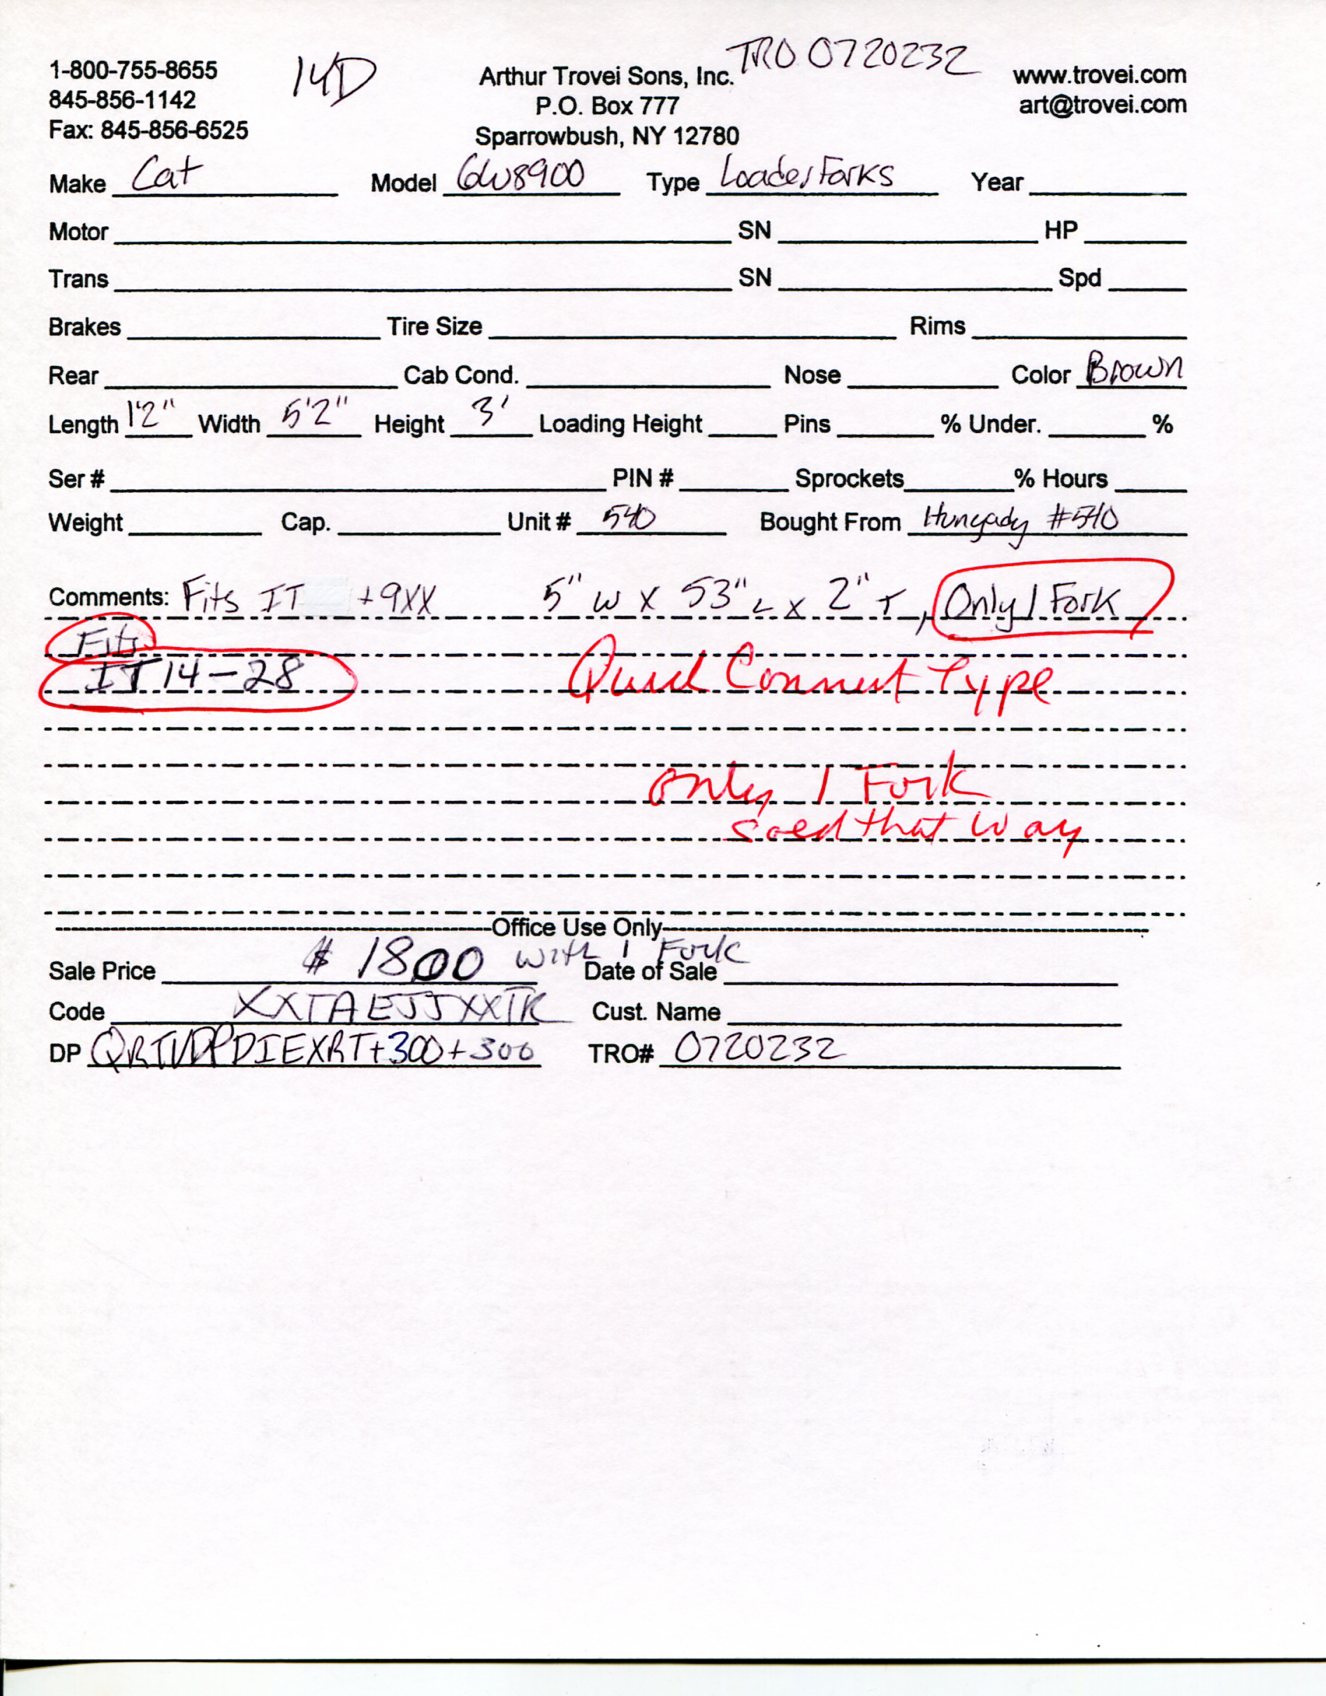 1-800-755-8655 14D Arthur Trovei Sons, Inc. TRO 0720232 www.trovei.com
845-856-1142 P.O. Box 777 art@trovei.com
Fax: 845-856-6525 Sparrowbush, NY 12780
Make Cat Model 6W8900 Type Loader Forks Year
Motor SN HP
Trans SN Spd
Brakes Tire Size Rims
Rear Cab Cond. Nose Color Brown
Length 1'2" Width 5'2" Height 3' Loading Height Pins % Under. %
Ser # PIN # Sprockets % Hours
Weight Cap. Unit # 540 Bought From #540
Comments: Fits IT +9XX 5" W X 53" L X 2" T, Only 1 Fork
Fits
IT 14-28 Quick Connect Type
only 1 Fork
Soed that way
Office Use Only
Sale Price $ 1800 with 1 Fork Date of Sale
Code XXTAEJJXXTK Cust. Name
DP +300+300 TRO# 0720232